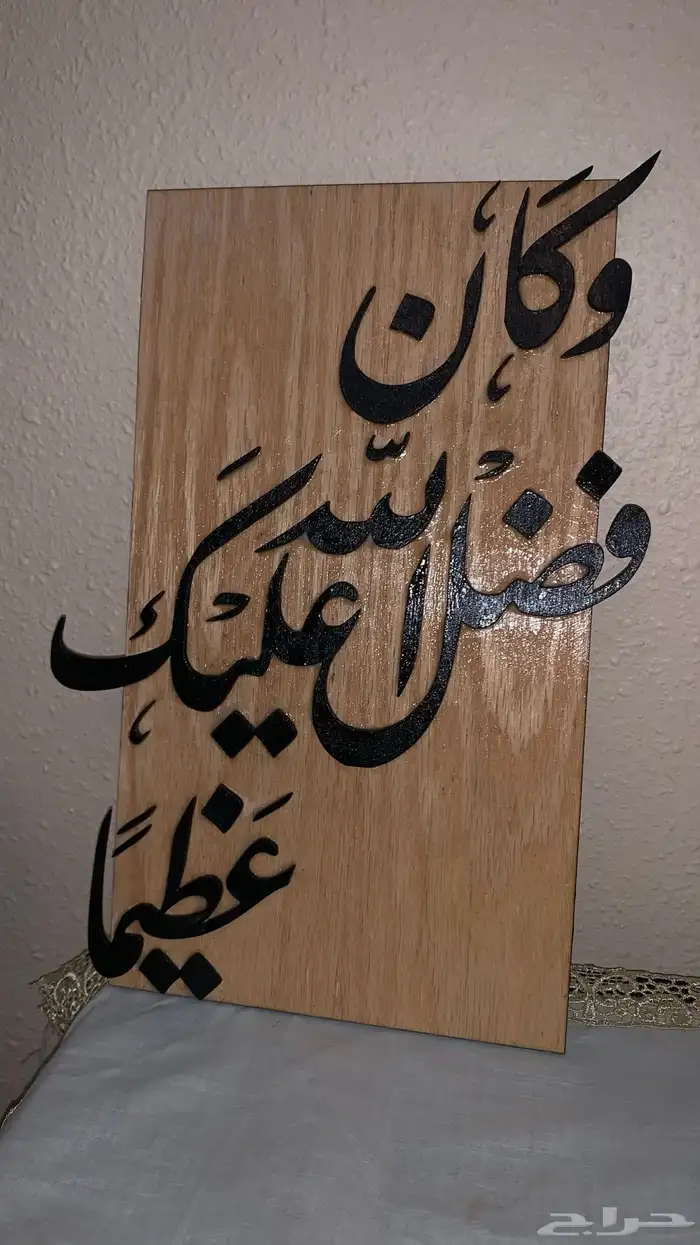 وَكَان
فضْل اللّه عليْكَ
عَظيمًا
حراج